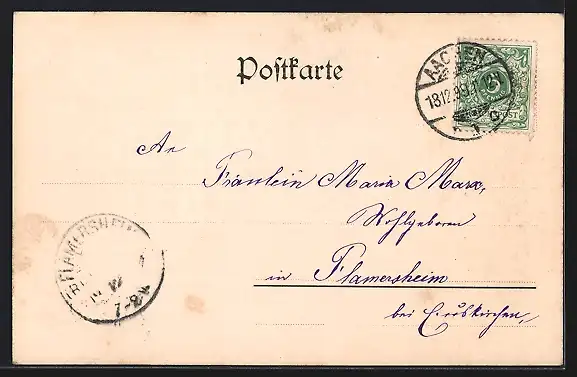 Postkarte
AACHEN
18.12.99
5
POST
An
Fräulein Maria Marx,
Wohlgeboren
in Flamersheim
bei Euskirchen,
FLAMERSHEIM
7-8